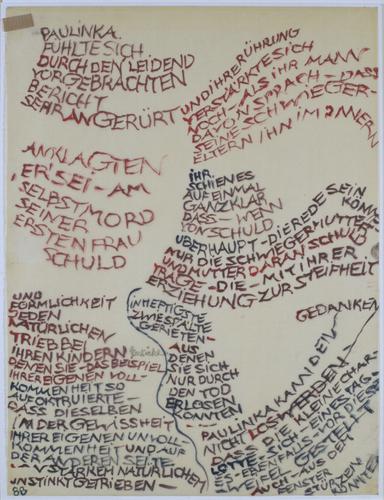 PAULINKA.
FÜHLTE SICH
DURCH DEN LEIDEND
VORGEBRACHTEN
BERICHT
SEHR ANGERÜRT
UND IHRE RÜHRUNG
VERSTÄRKTE SICH
NOCH – ALS IHR MANN
DAVON SPRACH – DASS
SEINE SCHWIEGER-
ELTERN IHN IM INNERN
ANKLAGTEN
ER SEI – AM
SELBSTMORD
SEINER
ERSTEN FRAU
SCHULD
IHR
SCHIEN ES
AUF EINMAL
GANZ KLAR
DASS – WENN
VON SCHULD
ÜBERHAUPT – DIE REDE SEIN KÖNNE –
NUR DIE SCHWIEGERMUTTER
UND MUTTER DARAN SCHULD
TRÄGE – DIE – MIT IHRER
ERZIEHUNG ZUR STEIFHEIT
UND
FÖRMLICHKEIT
JEDEN
NATÜRLICHEN
TRIEB BEI
IHREN KINDERN
DENEN SIE – DAS BEISPIEL
IHRER EIGENEN VOLL-
KOMMENHEIT SO
AUFOKTRUIERTE –
DASS DIESELBEN
IM DER GEWISSHEIT
IHRER EIGENEN UNVOLL-
KOMMENHEIT UND AUF
DER ANDEREN SEITE
STARKEM NATÜRLICHEN
INSTINKT GETRIEBEN –
IN HEFTIGSTE
ZWIESPÄLTE
GERIETEN –
AUS
DENEN
SIE SICH
NUR DURCH
DEN TOD
ERLÖSEN
KONNTEN
GEDANKEN
PAULINKA KANN DEN
NICHT LOSWERDEN –
DASS DIE KLEINE CHAR-
LOTTE – SICH – EINES TAGES
EBENFALLS – VOR DIESE
ZWEIFEL GESTELLT
AUS DEM
FENSTER
STÜRZEN
88